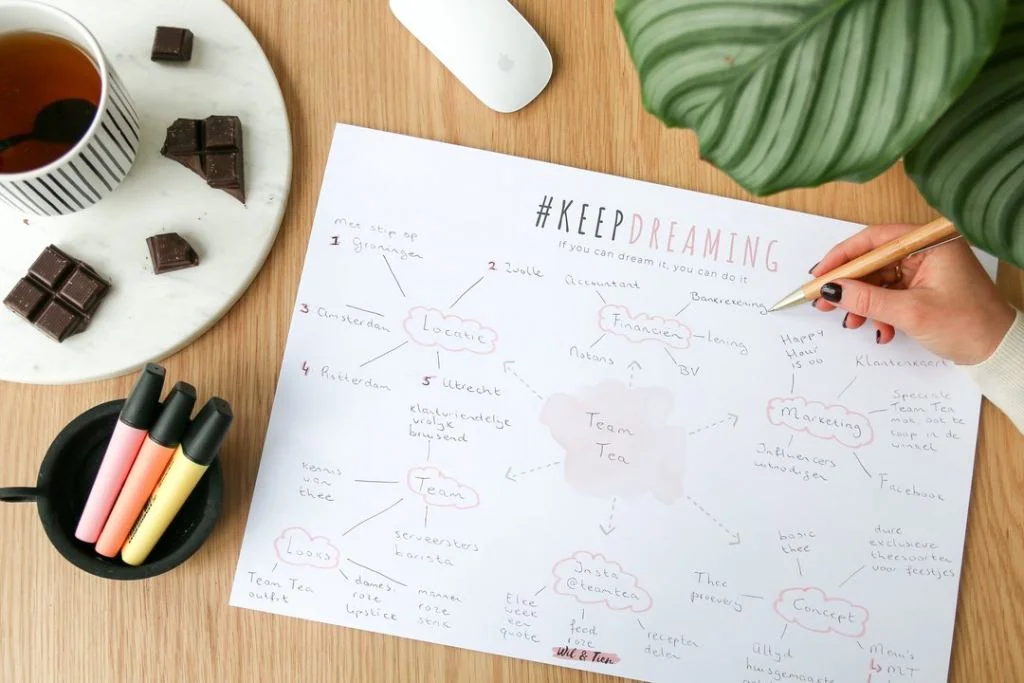 #KEEPDREAMING
If you can dream it, you can do it
Met stip op
1 Groningen
2 Zwolle
3 Amsterdam
Locatie
4 Rotterdam
5 Utrecht
Accountant
Bankrekening
Financien
Lening
Notaris
BV
Happy
Hour
15:00
Klantenkaart
Marketing
Speciale
Team Tea
mok, ook te
koop in de
winkel
Influencers
uitnodigen
Facebook
Team
Tea
klantvriendelijk
vrolijk
bruisend
kennis
van
thee
Team
serveersters
barista
Looks
Team Tea
outfit
dames:
roze
lipstick
mannen
roze
strik
Insta
@teamtea
Elke
week
een
quote
feed
roze
recepten
delen
Wil & Tien
basic
thee
dure
exclusieve
theesoorten
voor feestjes
Thee
proeverij
Concept
Altijd
huisgemaakte
Menu's
MT